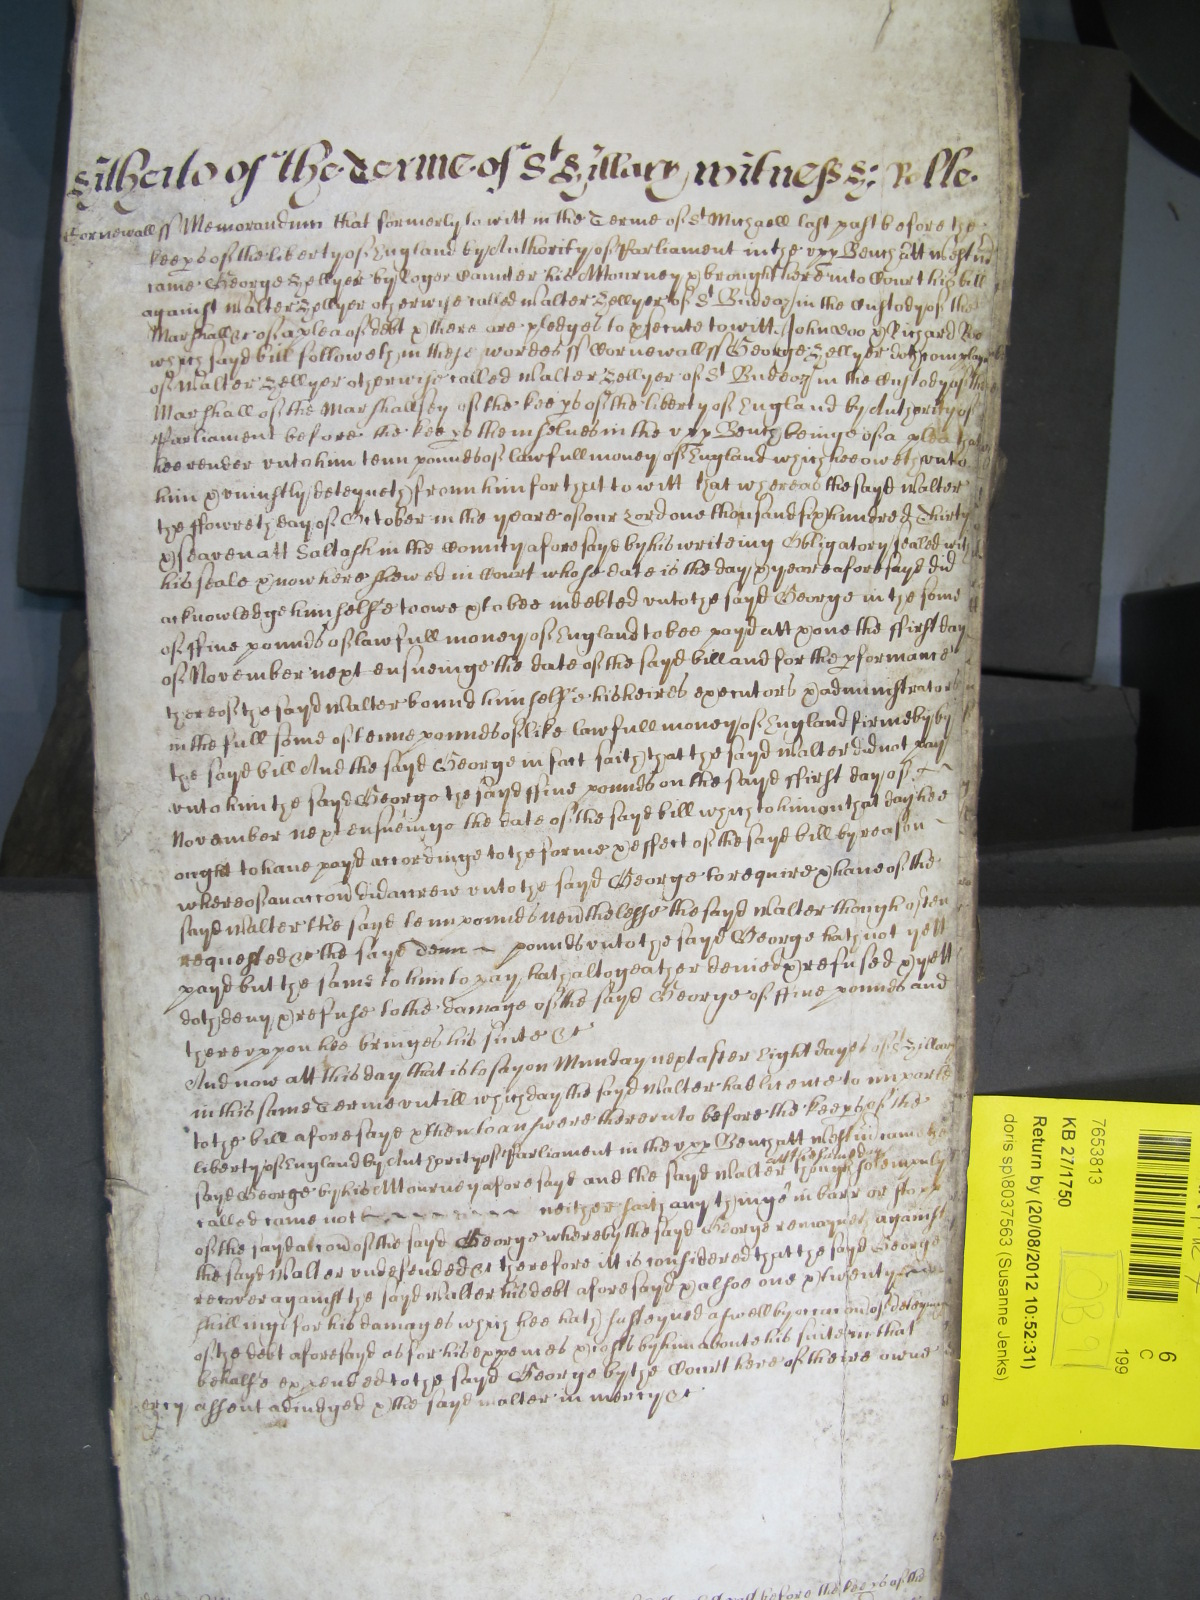 Hitherto of the Terme of St Hillary witness H: Rolle.
Cornewall ss Memorandum that formerly to witt in the Terme of St Michaell last past before the
keeps of the liberty of England by Authority of Parliament in the upp Bench att Westm
came George Hellyer by Roger his Attourney & brought here into Court his bill
against Walter Hellyer otherwise called Walter Hellyer of St Budeax in the Custody of the
Marshall &c of a plea of debt & there are pledges to psecute to witt John Doo & Richard Roo
which sayd bill followeth in these wordes ss Cornewall ss George Hellyer doth complayne
of Walter Hellyer otherwise called Walter Hellyer of St Budeax in the Custody of the
Marshall of the Marshalsey of the keeps of the liberty of England by Authority of
Parliament before the keeps themselves in the upp Bench beinge of a plea that
hee render unto him tenn pounds of lawfull money of England which hee oweth unto
him & uniustly deteyneth from him for that to witt that whereas the sayd Walter
the ffowreth day of October in the yeare of our Lord one thousand six hundred Thirty
& seaven att Saltash in the County aforesayd by his writeing Obligatory sealed with
his seale & now here shewed in Court whose date is the day & yeare aforesayd did
acknowledge himselfe to owe & to bee indebted unto the sayd George in the some
of ffive pounds of lawfull money of England to bee payd att & one the ffirst day
of November next ensueinge the date of the sayd bill and for the pformance
thereof the sayd Walter bound himselfe his heires executors & administrators
in the full some of tenne pounds of like lawfull money of England firmely by
the sayd bill And the sayd George in fact saith that the sayd Walter did not pay
unto him the sayd George the sayd ffive pounds on the sayd ffirst day of
November next ensueinge the date of the sayd bill which to him on that day hee
ought to have payd accordinge to the forme & effect of the sayd bill by reason
whereof an accon did accrew unto the sayd George to require & have of the
sayd Walter the sayd tenn pounds nevthelesse the sayd Walter though often
requested &c the sayd Tenn pounds unto the sayd George hath not yett
payd but the same to him to pay hath altogeather denied & refused & yett
doth deny & refuse to the damage of the sayd George of ffive pounds and
thereuppon hee bringes his suite &c
And now att this day that is to say on Munday next after Eight dayes of St Hillary
in this same Terme untill which day the sayd Walter had licence to imparle
to the bill aforesayd & then to answere thereunto before the keeps of the
liberty of England by Authority of Parliament in the upp Bench att Westm came the
sayd George by his Attourney aforesayd and the sayd Walter att the same day though solemnly
called came not neither saith any thinge in barr or stopp
of the sayd accon of the sayd George whereby the sayd George remaynes against
the sayd Walter undefended &c therefore itt is considered that the sayd George
recover against the sayd Walter his debt aforesayd & alsoe one & twenty
shillings for his damages which hee hath susteyned aswell by occacon of deteyninge
of the debt aforesayd as for his expences & costs by him aboute his suite in that
behalfe expended to the sayd George by the Court here of theire owne
ercy assent adiudged & the sayd Walter in mercy &c
7653813
KB 27/1750
Return by (20/08/2012 10:52:31)
doris sp\8037563 (Susanne Jenks)
6
C
199